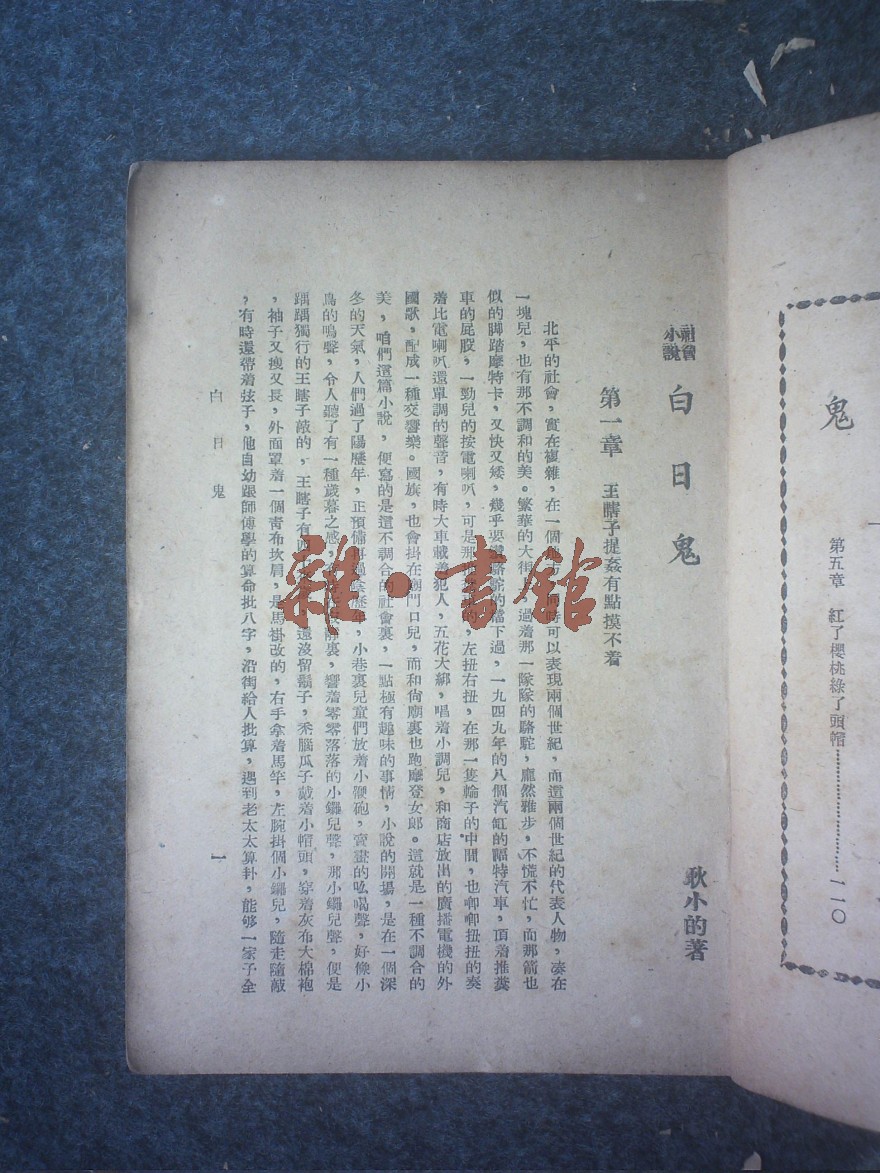 鬼
第五章　紅了櫻桃綠了頭帽……一一〇
社會小說
白日鬼
耿小的著
第一章　王瞎子捉姦有點摸不着
北平的社會，實在複雜，在一個地方，同時可以表現兩個世紀，而這兩個世紀的代表人物，湊在
一塊兒，也有那不調和的美。繁華的大街，過着那一隊隊的駱駝，龐然雅步，不慌不忙，而那箭也
似的脚踏摩特卡，又快又矮，幾乎要從駱駝的襠下過，一九四九年的八個汽缸的福特汽車，頂着推糞
車的屁股，一勁兒的按電喇叭，可是那推糞車的，左扭右扭，在那一隻輪子的中間，也唧唧扭扭的奏
着比電喇叭還單調的聲音，有時大車載着犯人，五花大綁，唱着小調兒，和商店放出的廣播電機的外
國歌，配成一種交響樂。國旗，也會掛在廟門口兒，而和尚廟裏也跑摩登女郎。這就是一種不調合的
美，咱們這篇小說，便寫的是這不調合的社會裏，一點極有趣味的事情，小說的開場，是在一個深
冬的天氣，人們過了陽歷年，正預備再過陰歷年，小巷裏兒童們放着小鞭砲，賣畫的吆喝聲，好像小
鳥的鳴聲，令人聽了有一種歲暮之感，裏，響着零零落落的小鑼兒聲，那小鑼兒聲，便是
踽踽獨行的王瞎子敲的，王瞎子有四還沒留鬍子，禿腦瓜子戴着小帽頭，穿着灰布大棉袍
，袖子又瘦又長，外面罩着一個青布坎肩，是馬褂改的，右手拿着馬竿，左腕掛個小鑼兒，隨走隨敲
，有時還帶着弦子，他自幼跟師傅學的算命批八字，沿街給人批算，遇到老太太算卦，能够一家子全
白日鬼
一
雜·書館